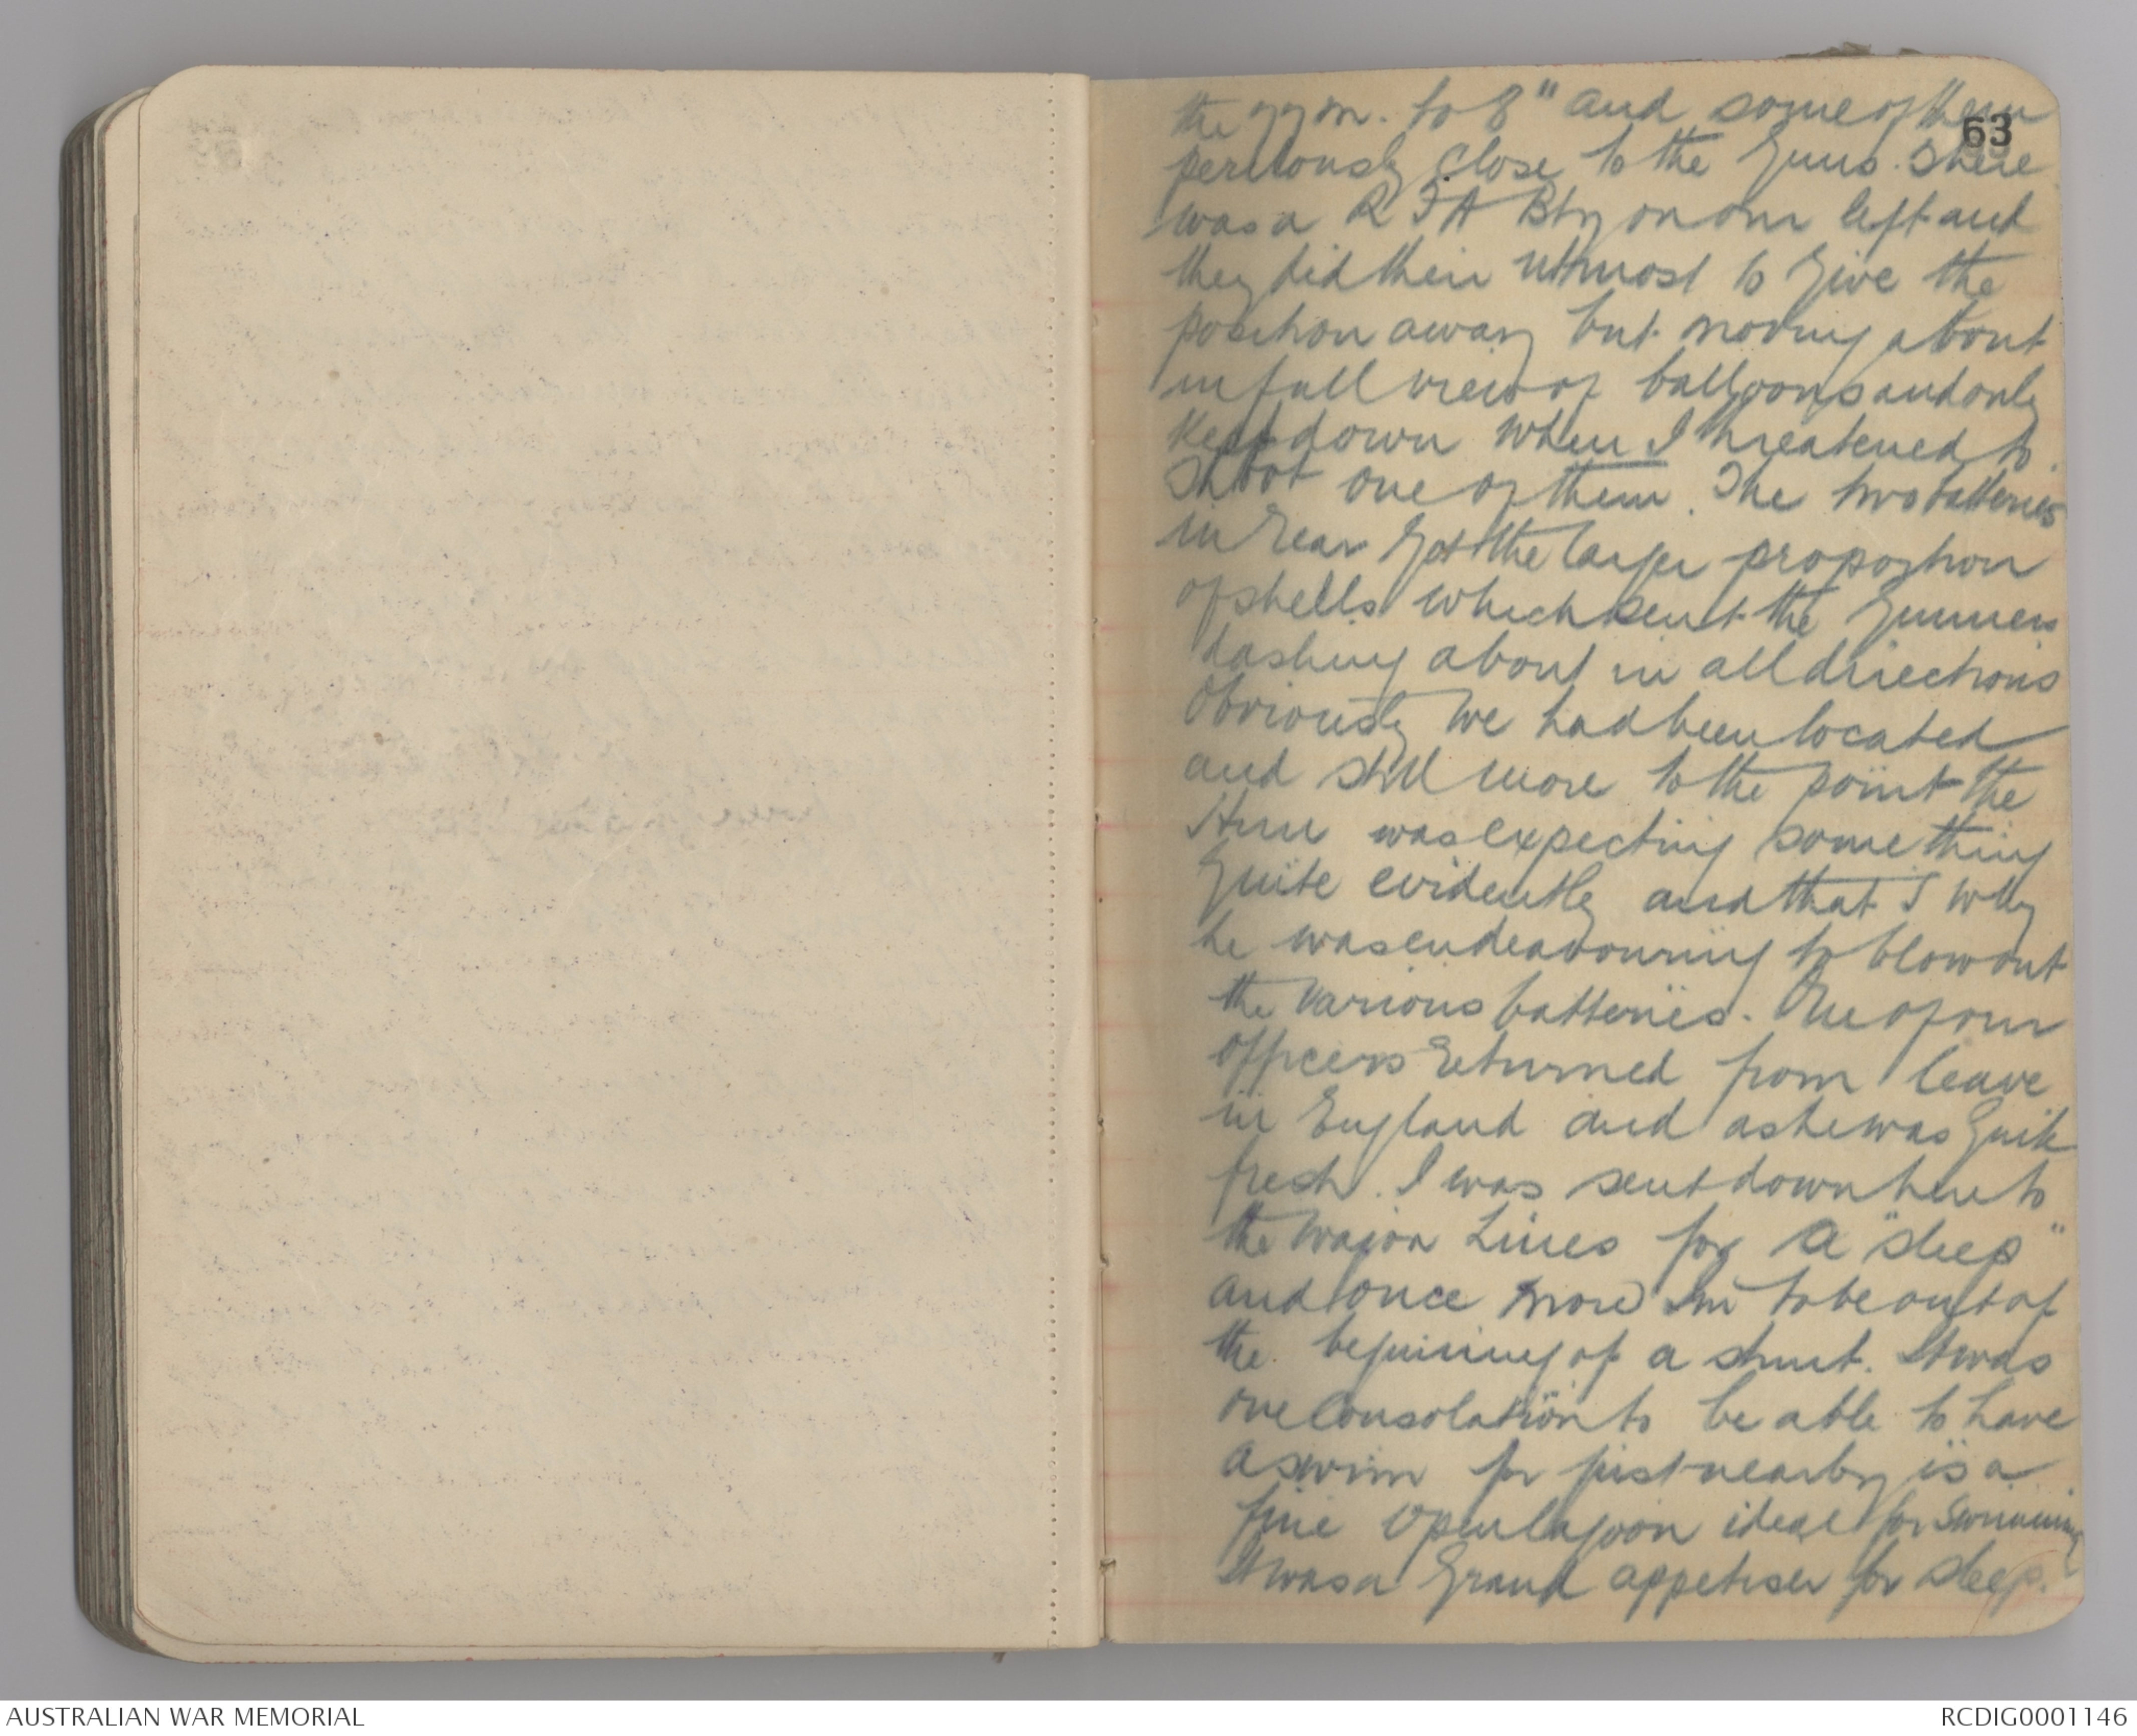 the 77m. to 8" and some of them
63
perilously close to the guns. There
was a R F A Bty on our left and
they did their utmost to give the
position away but moving about
in full view of balloons and only
kept down when I threatened to
shoot one of them. The two batteries
in rear got the larger proportion
of shells which sent the gunners
dashing about in all directions
Obviously we had been located
and still more to the point the
Hun was expecting something
quite evidently and that I why
he was endeavouring to blow out
the various batteries. One of our
officers returned from leave
in England and as he was quite
fresh. I was sent down here to
the Wagon Lines for a "sleep"
and once more Im to be out of
the beginning of a stunt. It was
one consolation to be able to have
a swim for just nearby is a
fine open lagoon ideal for swimming
It was a grand appetiser for sleep.
AUSTRALIAN WAR MEMORIAL
RCDIG0001146